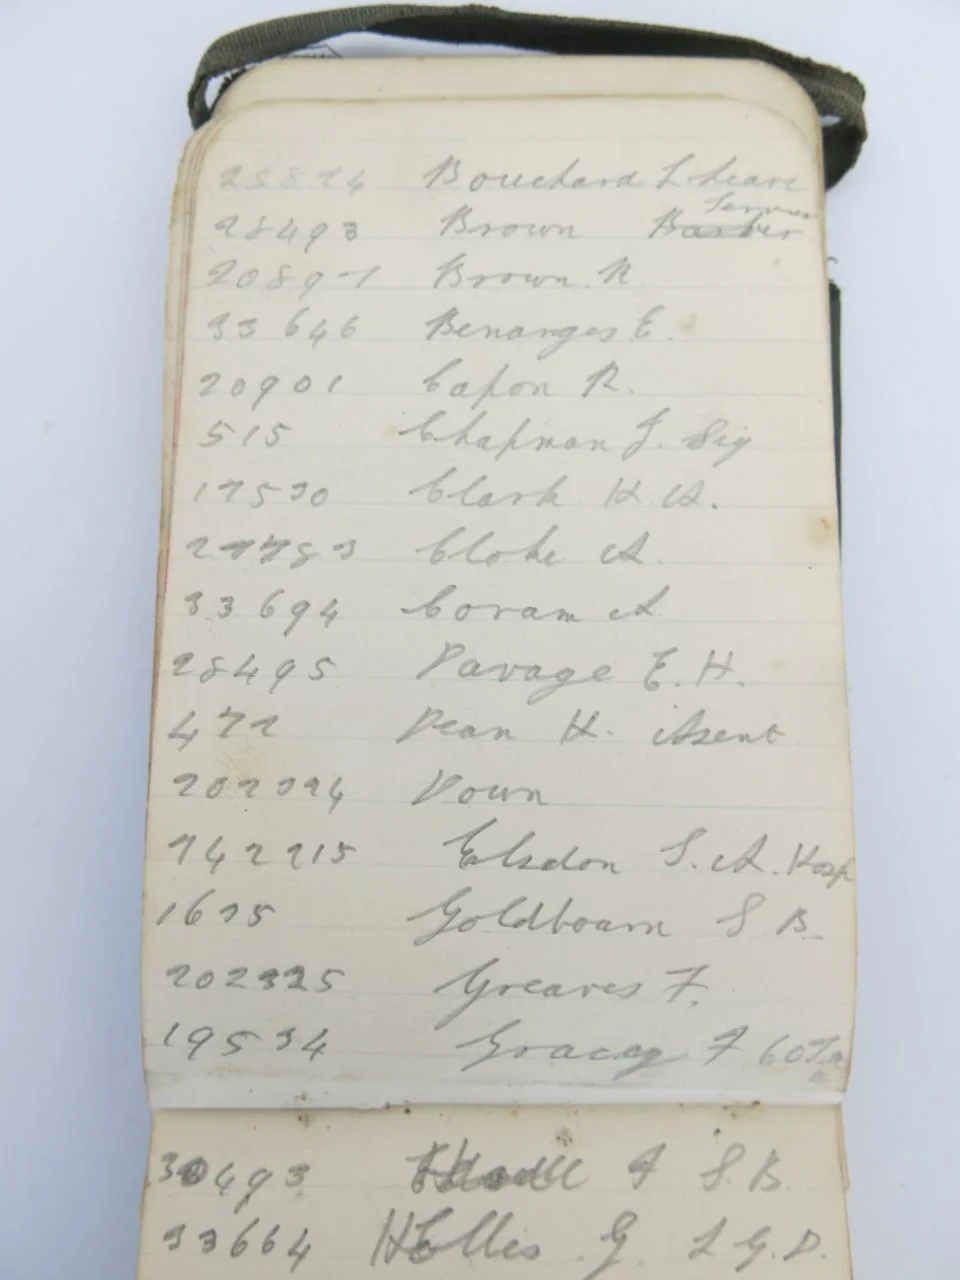 28824 Bouchard L. leave
28493 Brown Barber Servant
20897 Brown. R.
33646 Benanges E.
20901 Capon R.
515 Chapman J. Sig
17530 Clark H. A.
27783 Cloke A.
33694 Coram A
28495 Davage E. H.
472 Dean H. A/sent
202394 Down
242215 Elsdon S. A. Hosp
1635 Goldboam S B
202325 Greaves F.
19534 Gracey F 60
30493 F S. B.
33664 Hollis G. L G. D.